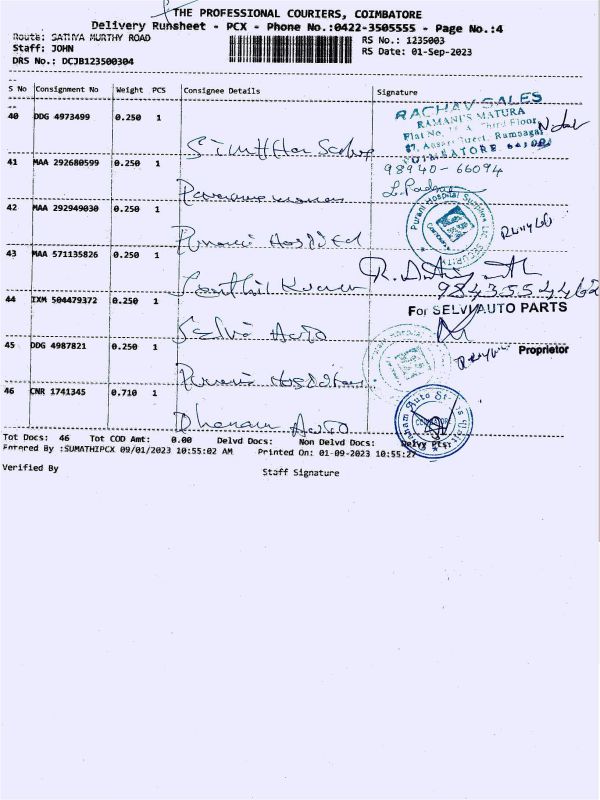 THE PROFESSIONAL COURIERS, COIMBATORE
Delivery Runsheet - PCX - Phone No.:0422-3505555 - Page No.:4
Route: SATHYA MURTHY ROAD RS No.: 1235003
Staff: JOHN RS Date: 01-Sep-2023
DRS No.: DCJB123500304
S No Consignment No Weight PCS Consignee Details Signature
RAGHAV SALES
RAMANI'S MATURA
40 DDG 4973499 0.250 1
Third Floor
Street, Ramnagar
COIMBATORE
41 MAA 292680599 0.250 1
98940-66094
42 MAA 292949030 0.250 1
Purani Hospital Supplies
SECURITY
Purani Hospital
43 MAA 571135826 0.250 1
Senthil Kumar
9843554462
44 IXM 504479372 0.250 1
For SELVI AUTO PARTS
Selvi Auto
45 DDG 4987821 0.250 1
Proprietor
Purani Hospital
46 CNR 1741345 0.710 1
Dhanam Auto
Tot Docs: 46 Tot COD Amt: 0.00 Delvd Docs: Non Delvd Docs: Delvy Pts:
Entered By :SUMATHIPCX 09/01/2023 10:55:02 AM Printed On: 01-09-2023 10:55:27
Verified By Staff Signature